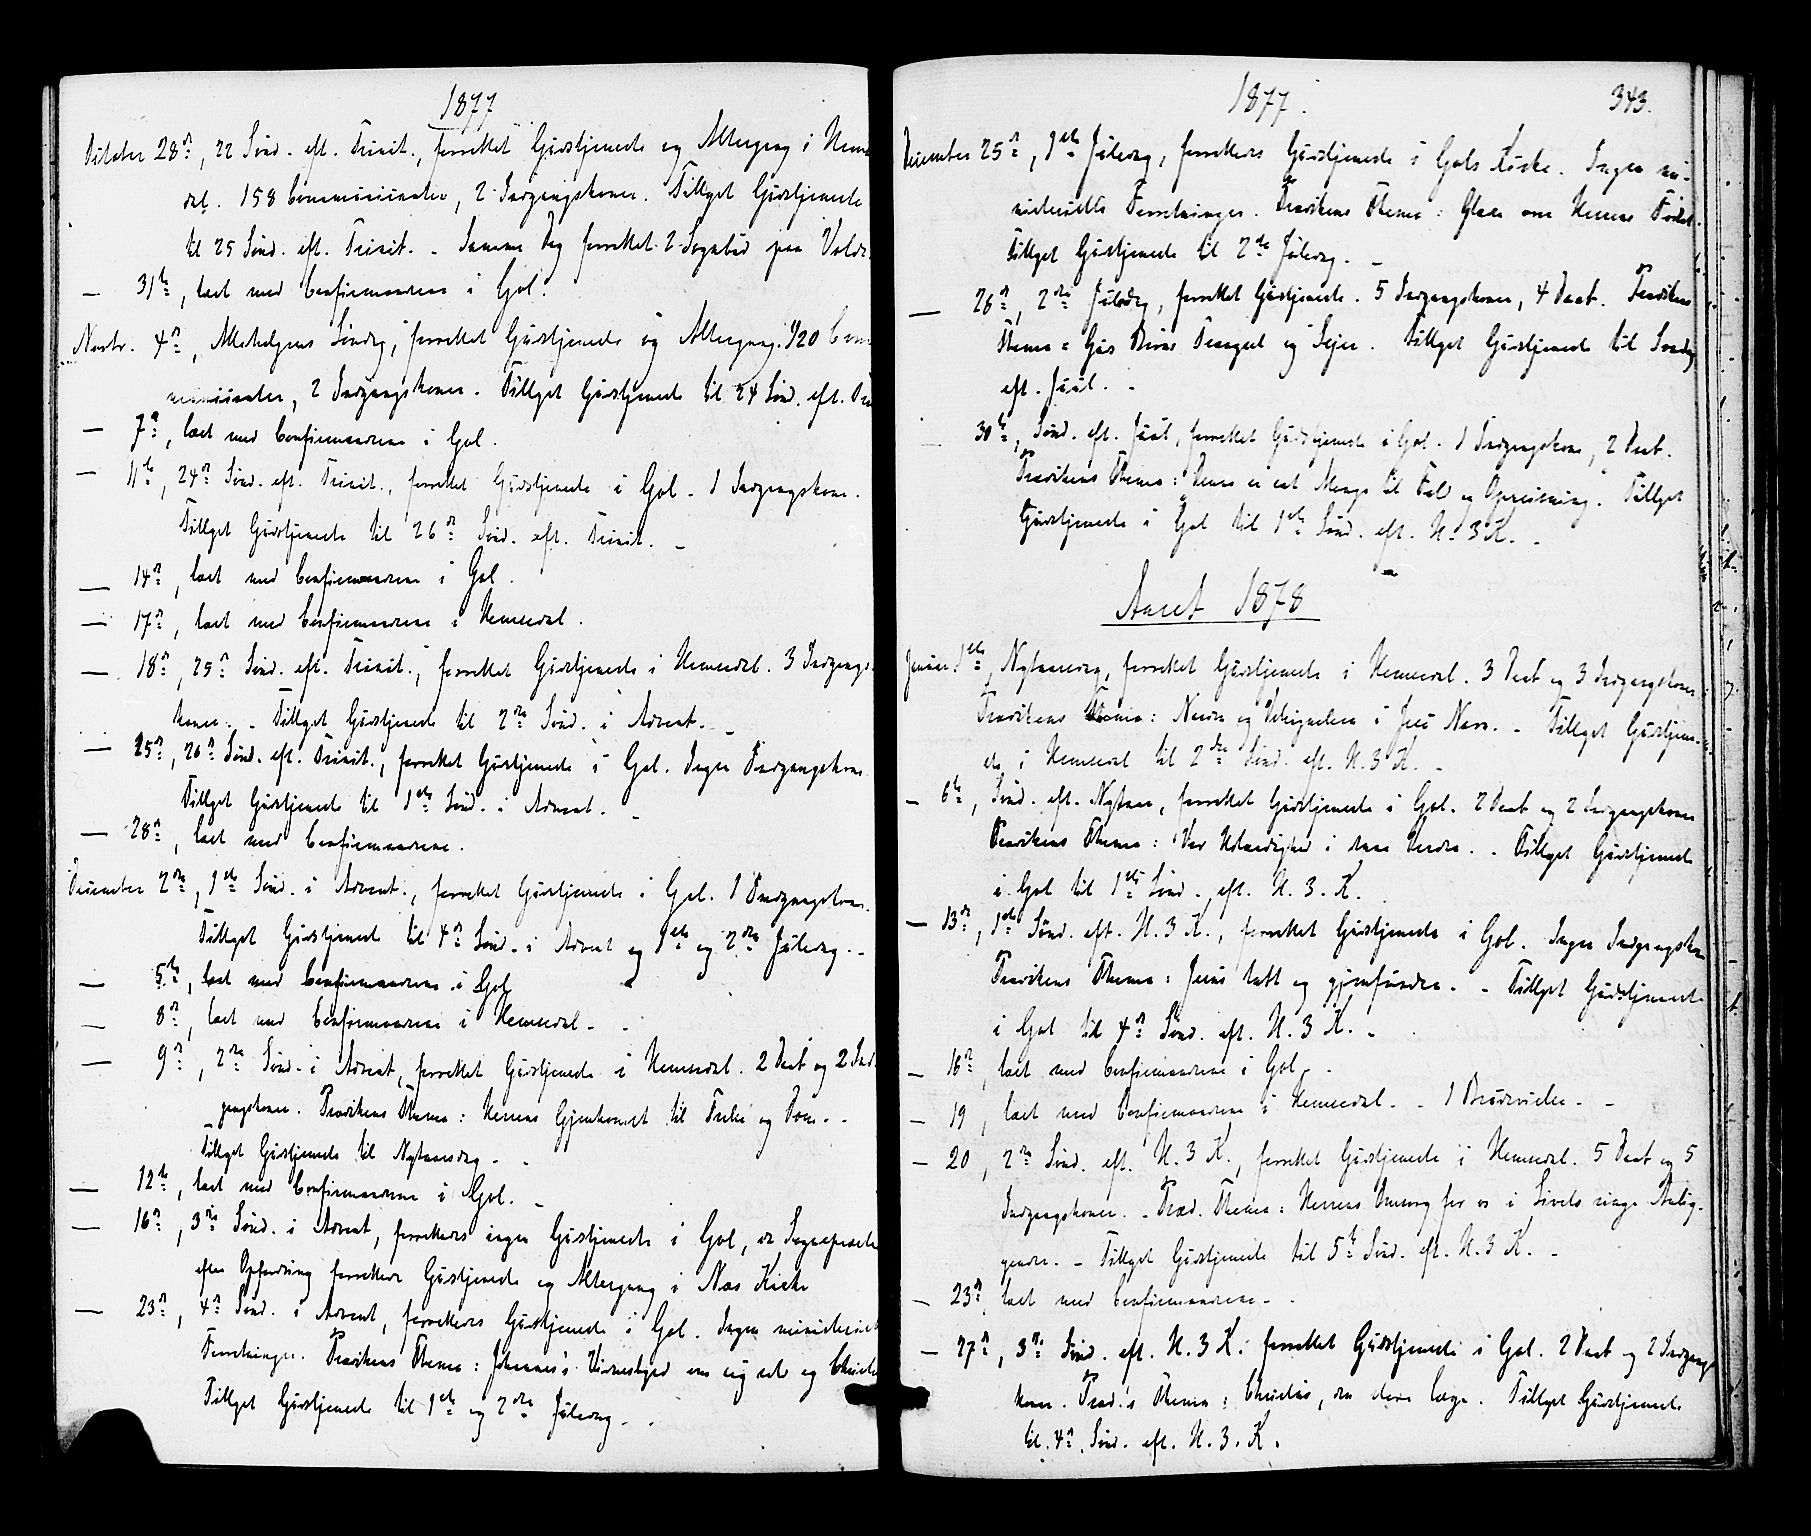 1877
October 28de, 22 Sønd. eft. Trinit., forrettet Gudstjeneste og Altergang i Hemse
dal. 158 Communicanter, 2 Indgangskoner. Tillyst Gudstjeneste
til 25 Sønd. eft. Trinit. - Samme Dag forrettet 2 Sognebud paa
— 31te, læst med Confirmanderne i Gol.
Novbr. 4de, Allehelgens Søndag, forrettet Gudstjeneste og Altergang. 120 Com
municanter, 2 Indgangskoner. Tillyst Gudstjeneste til 24 Sønd. eft. Tri
— 7de, læst med Confirmanderne i Gol.
— 11te, 24de Sønd. eft. Trinit., forrettet Gudstjeneste i Gol - 1 Indgangskone.
Tillyst Gudstjeneste til 26de Sønd. eft. Trinit. -
— 14de, læst med Confirmanderne i Gol.
— 17de, læst med Confirmanderne i Hemsedal.
— 18de, 25de Sønd. eft. Trinit., forrettet Gudstjeneste i Hemsedal. 3 Indgangs
koner. - Tillyst Gudstjeneste til 2den Sønd. i Advent. -
— 25de, 26de Sønd. eft. Trinit., forrettet Gudstjeneste i Gol. Ingen Indgangskone
Tillyst Gudstjeneste til 1ste Sønd. i Advent. -
— 28de, læst med Confirmanderne.
December 2den, 1ste Sønd. i Advent., forrettet Gudstjeneste i Gol. 1 Indgangskone.
Tillyst Gudstjeneste til 4de Sønd. i Advent og 1ste og 2den Juledag. -
— 5te, læst med Confirmanderne i Gol
— 8de, læst med Confirmanderne i Hemsedal -
— 9de, 2den Sønd. i Advent, forrettet Gudstjeneste i Hemsedal. 2 Daab og 2 Ind
gangskoner. Prædikens Thema: Herrens Gjenkomst til Frelse og Dom. -
Tillyst Gudstjeneste til Nytaarsdag. -
— 12te, læst med Confirmanderne i Gol. -
— 16de, 3die Sønd. i Advent, forrettedes ingen Gudstjeneste i Gol, da Sognepræsten
efter Opfordring forrettede Gudstjeneste og Altergang i Næs Kirke
— 23de, 4de Sønd. i Advent, forrettedes Gudstjeneste i Gol. Ingen ministeriel
Forretninger. Prædikens Thema: Johannes's Vidnesbyrd om sig selv og Christus
Tillyst Gudstjeneste til 1ste og 2den Juledag. -
1877.
343.
December 25de, 1ste Juledag, forrettedes Gudstjeneste i Gols Kirke. Ingen mi-
nisterielle Forretninger. Prædikens Thema: Glæde over Herrens Fødsel.
Tillyst Gudstjeneste til 2den Juledag. -
— 26de, 2den Juledag, forrettet Gudstjeneste. 5 Indgangskoner, 4 Daab. Prædikens
Thema: Guds Børns Trængsel og Sejer. Tillyst Gudstjeneste til Søndag
eft. Juul. -
— 30te, Sønd. eft. Juul, forrettet Gudstjeneste i Gol. 1 Indgangskone, 2 Daab.
Prædikens Thema: Denne er sat Mange til Fald og Opreisning. Tillyst
Gudstjeneste i Gol til 1ste Sønd. eft. H. 3 K. -
Aaret 1878
Januar 1ste, Nytaarsdag, forrettet Gudstjeneste i Hemsedal. 3 Daab og 3 Indgangskoner.
Prædikens Thema: Naade og Velsignelse i Jesu Navn. - Tillyst Gudstjene-
ste i Hemsedal til 2den Sønd. eft. H. 3 K. -
— 6te, Sønd. eft. Nytaar, forrettet Gudstjeneste i Gol. 2 Daab og 2 Indgangskoner
Prædikens Thema: Vor i - Tillyst Gudstjeneste
i Gol til 1ste Sønd. eft. H. 3. K.
— 13de, 1ste Sønd. eft. H. 3 K., forrettet Gudstjeneste i Gol. Ingen Indgangskone
Prædikens Thema: Jesus tabt og gjenfunden. - Tillyst Gudstjeneste
i Gol til 4de Sønd. eft. H. 3 K. -
— 16de, læst med Confirmanderne i Gol. -
— 19, læst med Confirmanderne i Hemsedal. - 1 Brudevielse. -
— 20, 2den Sønd. eft. H. 3 K., forrettet Gudstjeneste i Hemsedal. 5 Daab og 5
Indgangskoner. - Præd. Thema: Herrens Omsorg for os i Livets ringe Anlig-
gender. - Tillyst Gudstjeneste til 5te Sønd. eft. H. 3 K. -
— 23de, læst med Confirmanderne. -
— 27de, 3die Sønd. eft. H. 3 K. forrettet Gudstjeneste i Gol. 2 Daab og 2 Indgangs
koner. Præd.'s Thema: Christus, den Læge. Tillyst Gudstjeneste
til 4de Sønd. eft. H. 3. K.